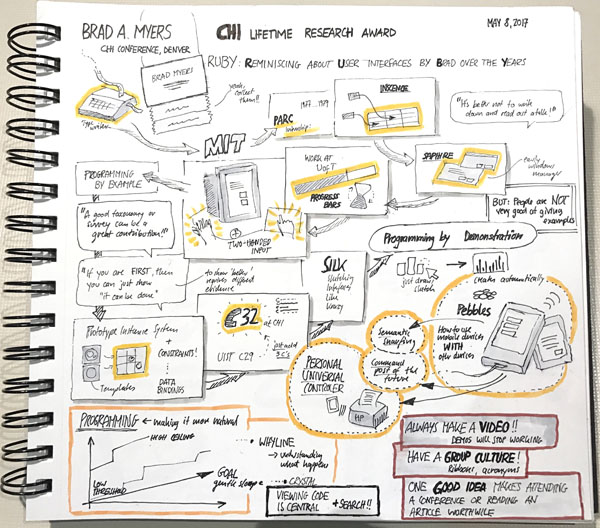 BRAD A. MYERS
CHI CONFERENCE, DENVER
CHI LIFETIME RESEARCH AWARD
MAY 8, 2017
RUBY: REMINISCING ABOUT USER INTERFACES BY BRAD OVER THE YEARS
BRAD MYERS
yeah, collect them!!
Typewriter
MIT
1977 - 1979
PARC
internship
INSCENSE
"It's better not to write
down and read out a talk!"
SAPPHIRE
early
windows
manager
PROGRAMMING
BY EXAMPLE
WORK AT
UOFT
PROGRESS
BARS
TWO-HANDED
INPUT
BUT: People are NOT
very good at giving
examples
"A good taxonomy or
survey can be a
great contribution!!"
Programming by Demonstration
"If you are FIRST, then
you can just show
"it can be done"
to show 'better'
requires different
evidence
SILK
Sketching
Interfaces
Like
Krazy
just draw
sketch
creates automatically
Pebbles
How to use
mobile devices
WITH
other devices
Prototype Instance System
+
CONSTRAINTS!
DATA
BINDINGS
Templates
C32 at CHI
UIST C29
just add
3 C's
Semantic
Snarfing
Command
post of the
future
PERSONAL
UNIVERSAL
CONTROLLER
HP
PROGRAMMING ← making it more natural
HIGH CEILING
LOW
THRESHOLD
GOAL
gentle slope
WHYLINE
→ understanding
what happens
CRYSTAL
VIEWING CODE
IS CENTRAL
+ SEARCH!!
ALWAYS MAKE A VIDEO!!
DEMOS WILL STOP WORKING
HAVE A GROUP CULTURE!
Ribbons, acronyms
ONE GOOD IDEA MAKES ATTENDING
A CONFERENCE OR READING AN
ARTICLE WORTHWILE